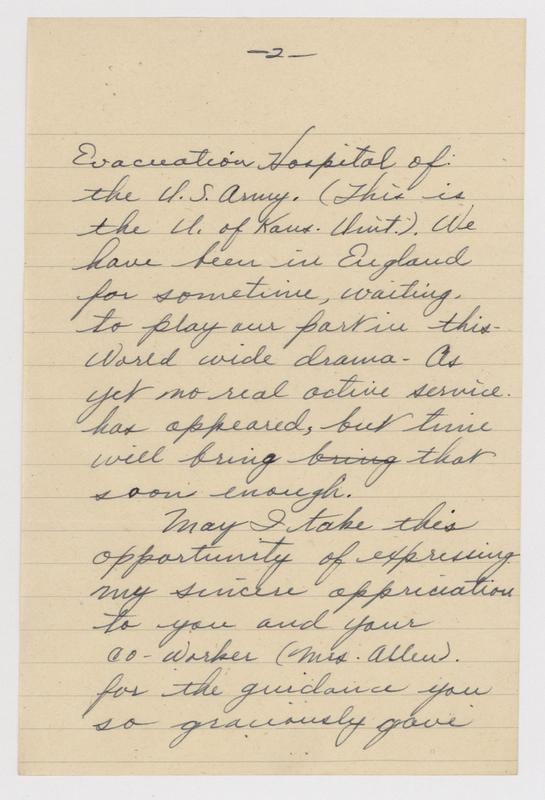 -2-
Evacuation Hospital of
the U.S. Army. (This is
the U. of Kans. Unit.). We
have been in England
for sometime, waiting.
to play our part in this-
World wide drama - As
yet no real active service.
has appeared, but time
will bring bring that
soon enough.
May I take this
opportunity of expressing
my sincere appriciation
to you and your
co-worker (Mrs. Allen).
for the guidance you
so graciously gave